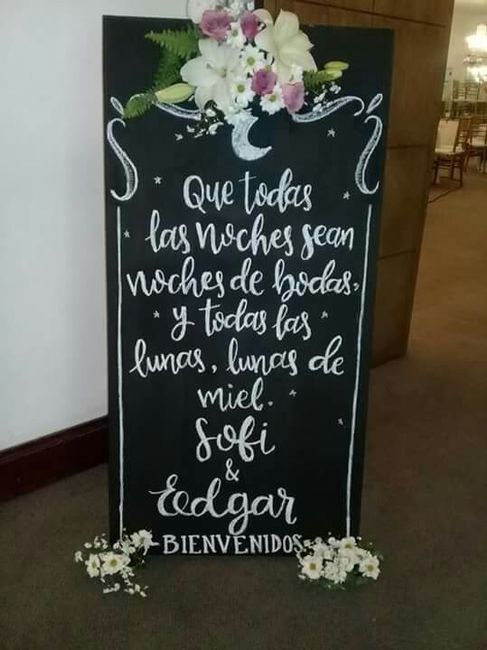 Que todas
las noches sean
noches de bodas,
y todas las
lunas, lunas de
miel.
Sofi
&
Edgar
BIENVENIDOS